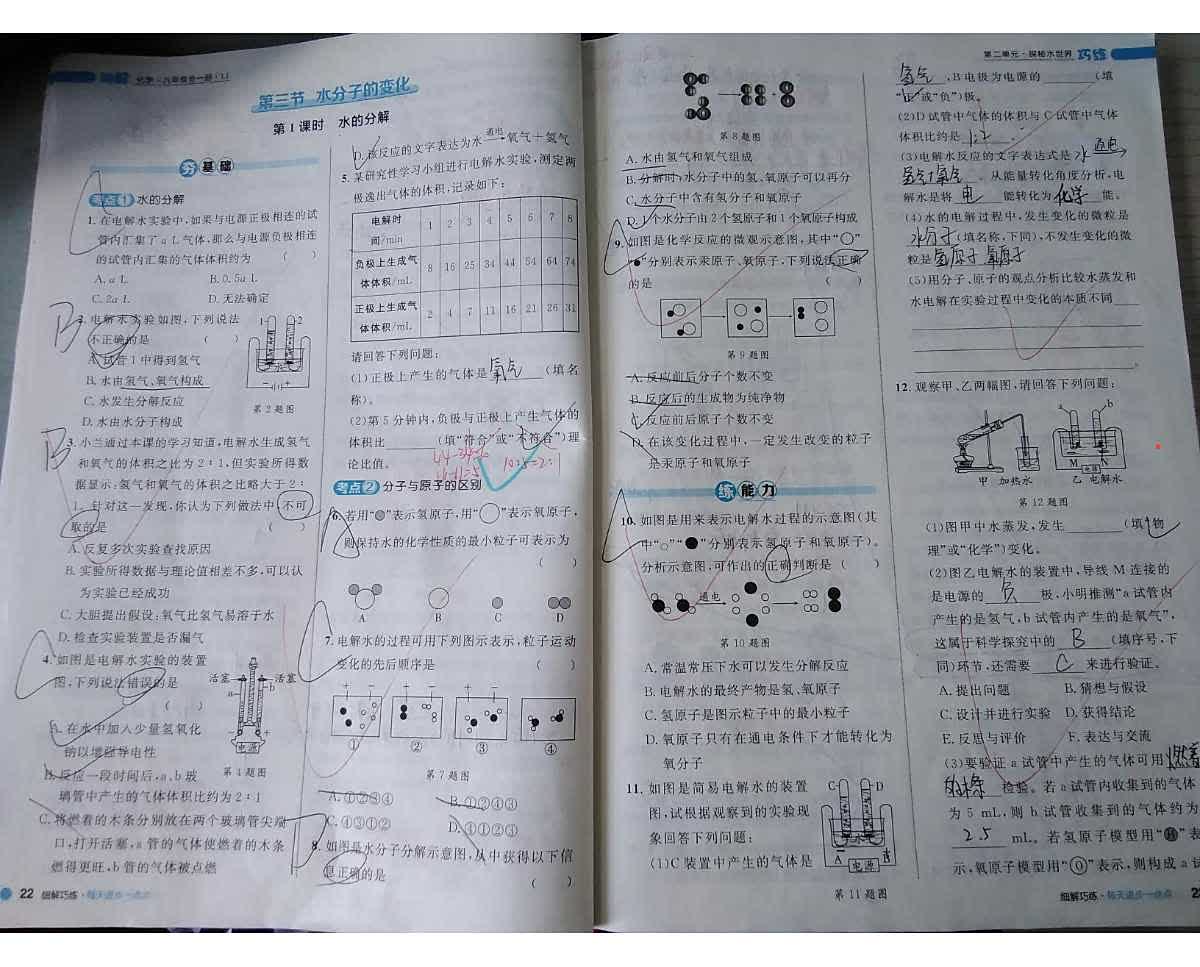 细解 化学·八年级全一册(LJ)
第三节 水分子的变化
第1课时 水的分解
夯基础
考点1 水的分解
1.在电解水实验中,如果与电源正极相连的试
管内汇集了a L气体,那么与电源负极相连
的试管内汇集的气体体积约为 ( )
A.a L B.0.5a L
C.2a L D.无法确定
2.电解水实验如图,下列说法
不正确的是 ( )
A.试管1中得到氢气
B.水由氢气、氧气构成
C.水发生分解反应
D.水由水分子构成
1 2
水
第2题图
B
3.小兰通过本课的学习知道,电解水生成氢气
和氧气的体积之比为2∶1,但实验所得数
据显示:氢气和氧气的体积之比略大于2∶
1。针对这一发现,你认为下列做法中,不可
取的是 ( )
A.反复多次实验查找原因
B.实验所得数据与理论值相差不多,可以认
为实验已经成功
C.大胆提出假设:氧气比氢气易溶于水
D.检查实验装置是否漏气
B
4.如图是电解水实验的装置
图,下列说法错误的是
( )
A.在水中加入少量氢氧化
钠以增强导电性
B.反应一段时间后,a、b玻
璃管中产生的气体体积比约为2∶1
C.将燃着的木条分别放在两个玻璃管尖端
口,打开活塞,a管的气体使燃着的木条
燃得更旺,b管的气体被点燃
活塞 活塞
a b
电源
第4题图
22 细解巧练·每天进步一点点
D.该反应的文字表达为水 通电→ 氧气+氢气
5.某研究性学习小组进行电解水实验,测定两
极逸出气体的体积,记录如下:
电解时间/min 1 2 3 4 5 6 7 8
负极上生成气体体积/mL 8 16 25 34 44 54 64 74
正极上生成气体体积/mL 2 4 7 11 16 21 26 31
请回答下列问题:
(1)正极上产生的气体是 氧气 (填名
称)。
(2)第5分钟内,负极与正极上产生气体的
体积比 (填“符合”或“不符合”)理
论比值。
44-34=10
16-11=5
10:5=2:1
考点2 分子与原子的区别
6.若用“ ”表示氢原子,用“○”表示氧原子,
则保持水的化学性质的最小粒子可表示为
( )
A B C D
7.电解水的过程可用下列图示表示,粒子运动
变化的先后顺序是 ( )
① ② ③ ④
第7题图
A.①②③④ B.①②④③
C.④③①② D.④①②③
8.如图是水分子分解示意图,从中获得以下信
息正确的是 ( )
第二单元·探秘水世界 巧练
第8题图
A.水由氢气和氧气组成
B.分解时,水分子中的氢、氧原子可以再分
C.水分子中含有氢分子和氧原子
D.1个水分子由2个氢原子和1个氧原子构成
9.如图是化学反应的微观示意图,其中“○”
“●”分别表示汞原子、氧原子,下列说法正确
的是 ( )
第9题图
A.反应前后分子个数不变
B.反应后的生成物为纯净物
C.反应前后原子个数不变
D.在该变化过程中,一定发生改变的粒子
是汞原子和氧原子
练能力
10.如图是用来表示电解水过程的示意图(其
中“○”“●”分别表示氢原子和氧原子)。
分析示意图,可作出的正确判断是 ( )
通电
第10题图
A.常温常压下水可以发生分解反应
B.电解水的最终产物是氢、氧原子
C.氢原子是图示粒子中的最小粒子
D.氧原子只有在通电条件下才能转化为
氧分子
11.如图是简易电解水的装置
图,试根据观察到的实验现
象回答下列问题:
(1)C装置中产生的气体是
C D
A
电源
第11题图
氢气 ,B电极为电源的 (填
“正”或“负”)极。
(2)D试管中气体的体积与C试管中气体
体积比约是 1:2 。
(3)电解水反应的文字表达式是 水 通电→
氢气+氧气 。从能量转化角度分析,电
解水是将 电 能转化为 化学 能。
(4)水的电解过程中,发生变化的微粒是
水分子 (填名称,下同),不发生变化的微
粒是 氢原子 氧原子
(5)用分子、原子的观点分析比较水蒸发和
水电解在实验过程中变化的本质不同
。
12.观察甲、乙两幅图,请回答下列问题:
a b
M N
电源
甲 加热水 乙 电解水
第12题图
(1)图甲中水蒸发,发生 (填“物
理”或“化学”)变化。
(2)图乙电解水的装置中,导线M连接的
是电源的 负 极,小明推测“a试管内
产生的是氢气,b试管内产生的是氧气”,
这属于科学探究中的 B (填序号,下
同)环节,还需要 C 来进行验证。
A.提出问题 B.猜想与假设
C.设计并进行实验 D.获得结论
E.反思与评价 F.表达与交流
(3)要验证a试管中产生的气体可用 燃着
的木条 检验。若a试管内收集到的气体
为5 mL,则b试管收集到的气体约为
2.5 mL。若氢原子模型用“H”表
示,氧原子模型用“O”表示,则构成a试
细解巧练·每天进步一点点